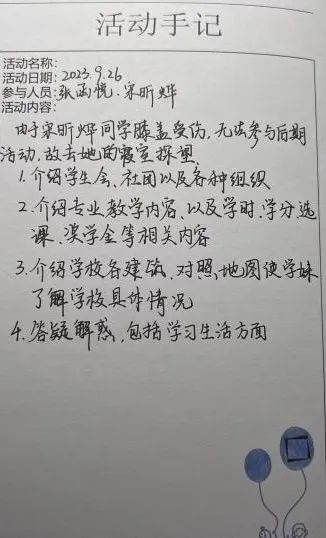 活动手记
活动名称:
活动日期: 2023.9.26
参与人员: 张函悦、宋昕烨
活动内容:
由于宋昕烨同学膝盖受伤,无法参与后期
活动,故去她的寝室探望。
1.介绍学生会、社团以及各种组织
2.介绍专业教学内容、以及学时、学分、选
课、奖学金等相关内容
3.介绍学校各建筑,对照地图使学妹
了解学校具体情况
4.答疑解惑,包括学习生活方面